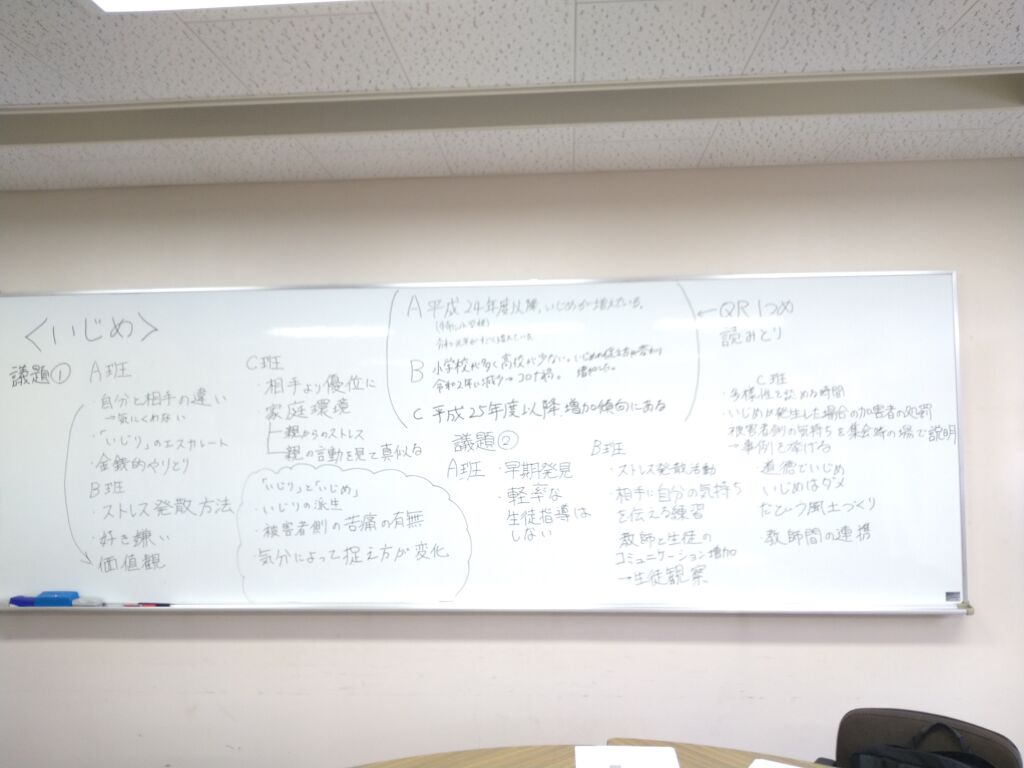 <いじめ>
議題①
A班
・自分と相手の違い
→気にくわない
・「いじり」のエスカレート
・金銭的やりとり
B班
・ストレス発散方法
・好き嫌い
価値観
C班
・相手より優位に
・家庭環境
親からのストレス
親の言動を見て真似る
「いじり」と「いじめ」
・いじりの派生
・被害者側の苦痛の有無
・気分によって捉え方が変化
A 平成24年度以降、いじめが増えている。
B 小学校が多く高校が少ない。いじめの
令和2年は減少→コロナ禍。増加した。
C 平成25年度以降増加傾向にある
←QR1つめ
読みとり
議題②
A班
・早期発見
・軽率な
生徒指導は
しない
B班
・ストレス発散活動
・相手に自分の気持ち
を伝える練習
教師と生徒の
コミュニケーション増加
→生徒観察
C班
・多様性を認める時間
・いじめが発生した場合の加害者の処罰
被害者側の気持ちを集会等の場で説明
→事例を挙げる
道徳でいじめ
いじめはダメ
という風土づくり
教師間の連携